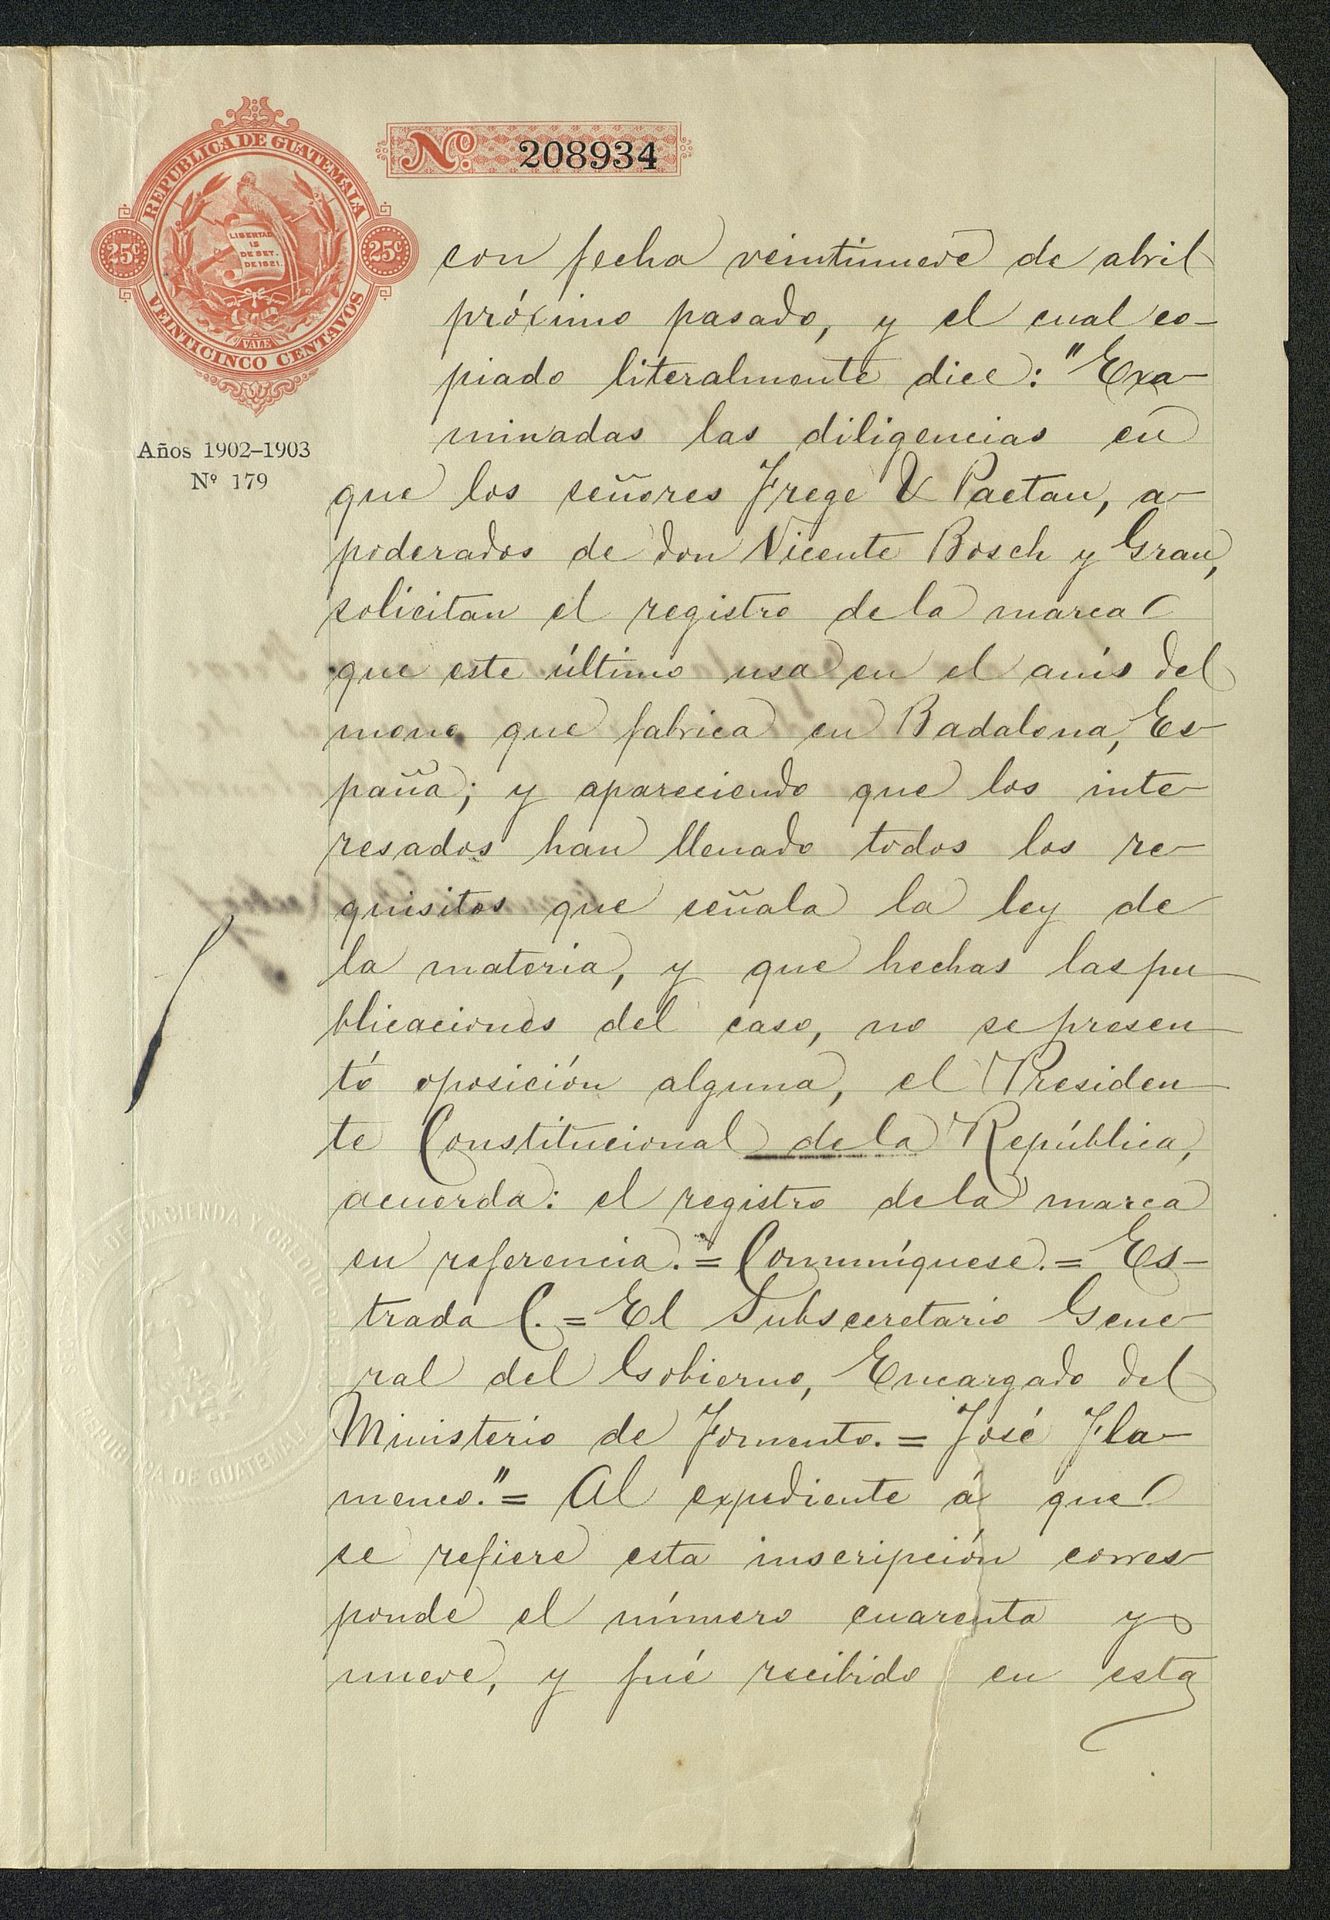 REPÚBLICA DE GUATEMALA
25c.
LIBERTAD
15
DE SET.
DE 1821.
25c.
VALE
VEINTICINCO CENTAVOS
Nº 208934
Años 1902–1903
Nº 179
con fecha veintinueve de abril
próximo pasado, y el cual co-
piado literalmente dice: "Exa-
minadas las diligencias en
que los señores Frege & Paetau, a-
poderados de don Vicente Bosch y Grau,
solicitan el registro de la marca
que este último usa en el anís del
mono que fabrica en Badalona, Es-
paña; y apareciendo que los inte-
resados han llenado todos los re-
quisitos que señala la ley de
la materia, y que hechas las pu-
blicaciones del caso, no se presen-
tó oposición alguna, el Presiden-
te Constitucional de la República,
acuerda: el registro de la marca
en referencia.=Comuníquese.=Es-
trada C.=El Subsecretario Gene-
ral del Gobierno, Encargado del
Ministerio de Fomento.=José Fla-
menco."= Al expediente á que
se refiere esta inscripción corres-
ponde el número cuarenta y
nueve, y fué recibido en esta
DE HACIENDA Y CREDITO
REPUBLICA DE GUATEMALA